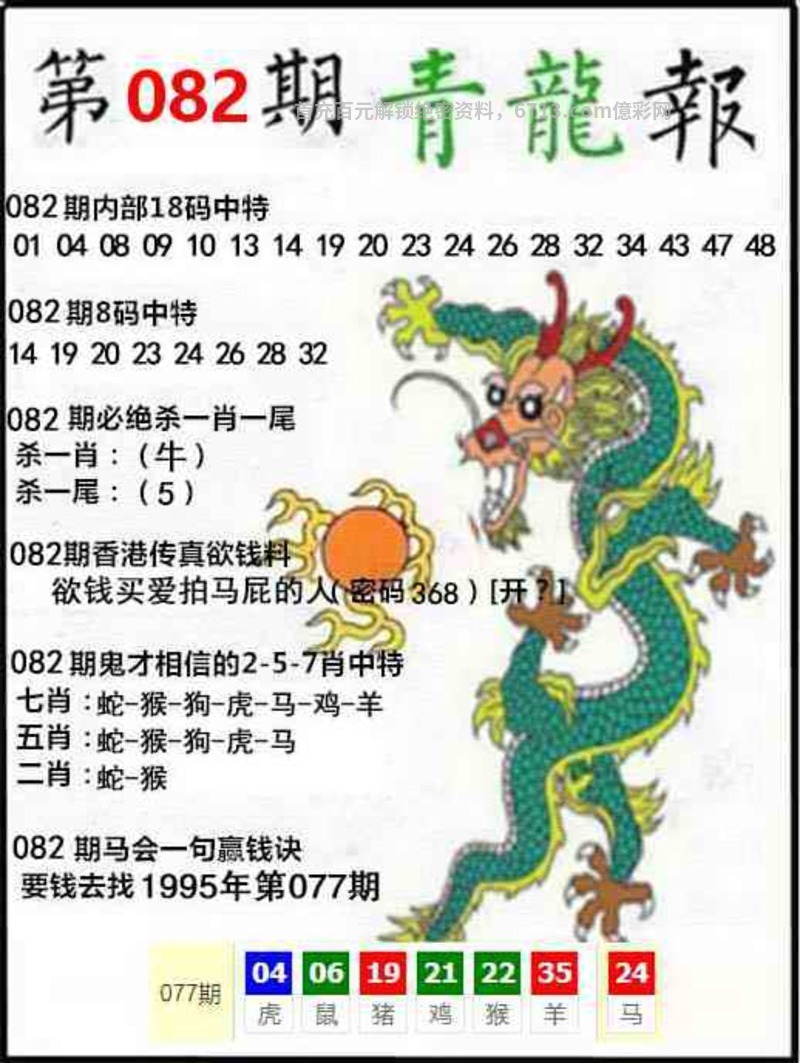 第082期青龍報
首充百元解锁绝密资料，6773.com億彩网
082期内部18码中特
01 04 08 09 10 13 14 19 20 23 24 26 28 32 34 43 47 48
082期8码中特
14 19 20 23 24 26 28 32
082 期必绝杀一肖一尾
杀一肖：（牛）
杀一尾：（5）
082期香港传真欲钱料
欲钱买爱拍马屁的人(密码368）[开？]
082期鬼才相信的2-5-7肖中特
七肖：蛇-猴-狗-虎-马-鸡-羊
五肖：蛇-猴-狗-虎-马
二肖：蛇-猴
082 期马会一句赢钱诀
要钱去找1995年第077期
077期 04 06 19 21 22 35 24
虎 鼠 猪 鸡 猴 羊 马